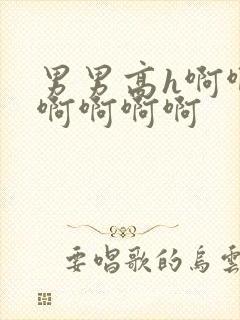 男男高h啊啊
啊啊啊啊
要唱歌的烏雲